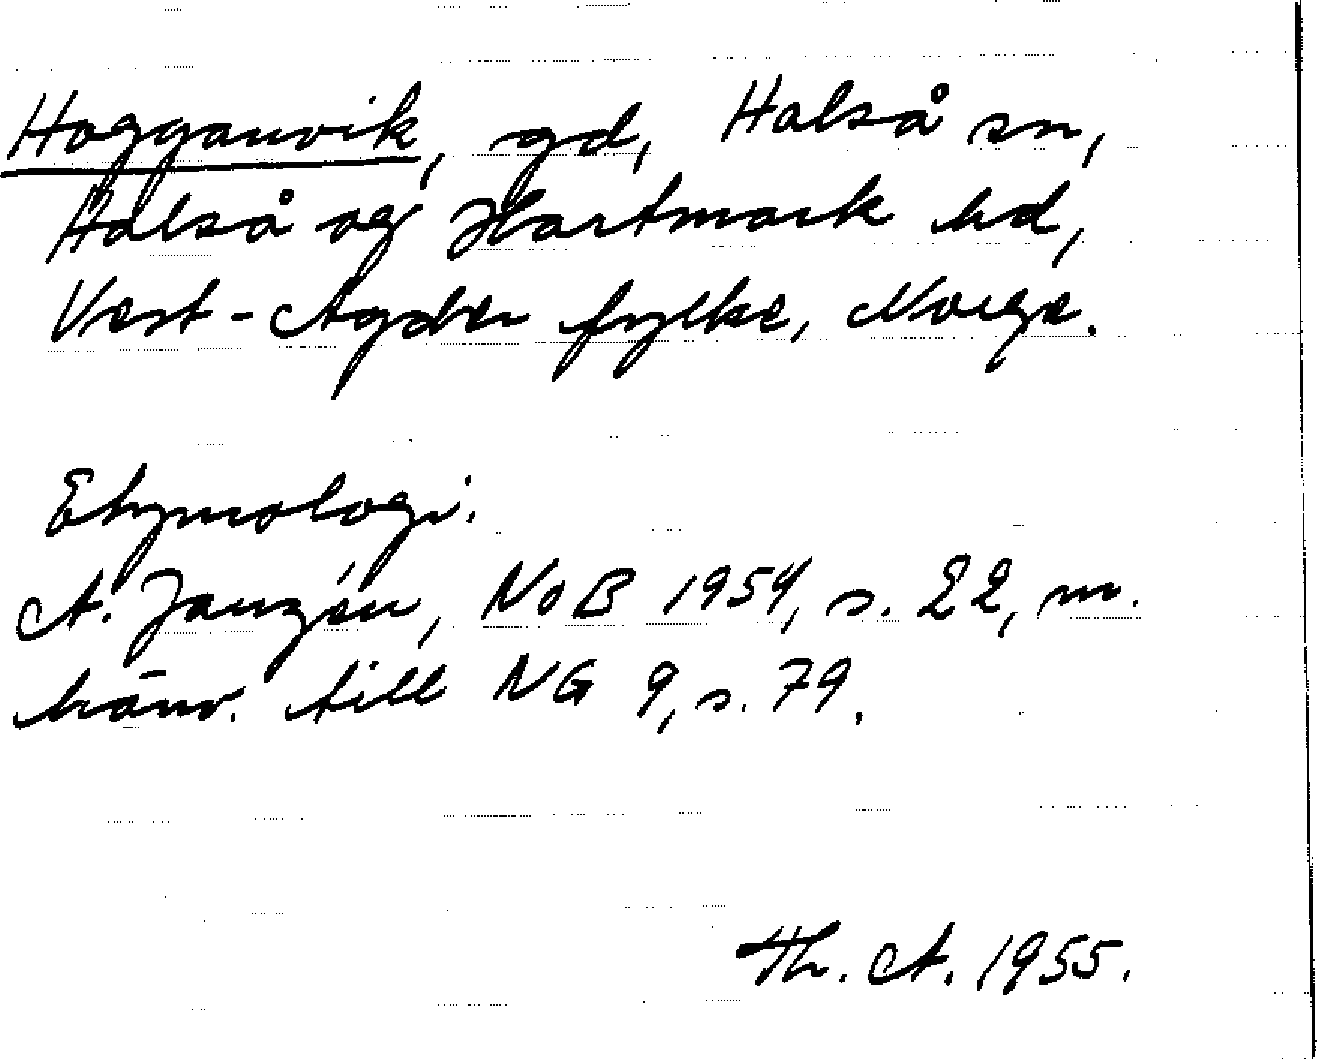 Hogganvik, gd, Halså sn,
Halså og Hartmark hd,
Vest-Agder fylke, Norge.
Etymologi.
A. Janzén, NoB 1954, s. 22, m.
hänv. till NG 9, s. 79.
Th. A. 1955.